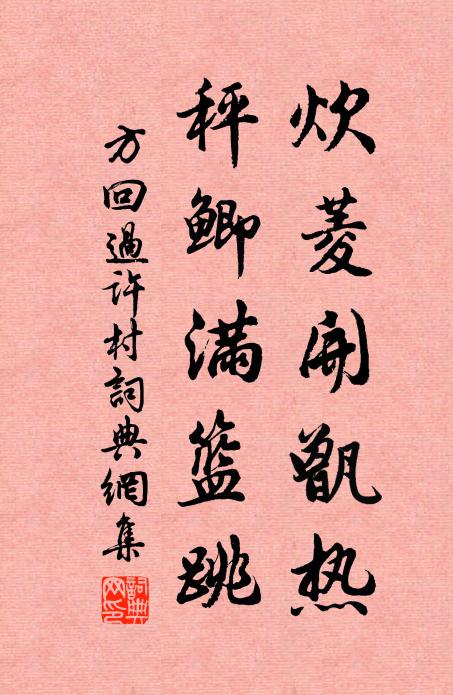 炊菱开甑热
秤鲫满篮跳
方回過许村詞典網集
詞典網印